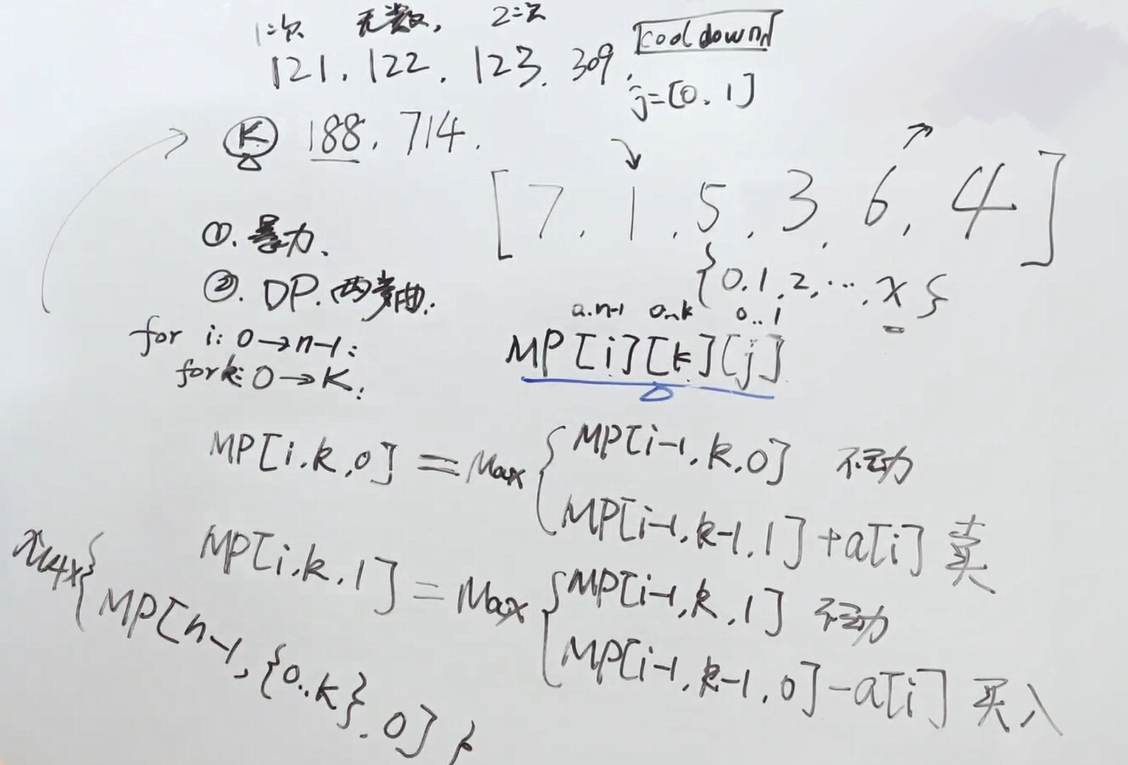 1次 无数, 2次
121, 122, 123, 309, cooldown
j=[0,1]
K 188, 714.
[7, 1, 5, 3, 6, 4]
①. 暴力.
{0,1,2,…, x}
②. DP.
0..n-1 0..k 0..1
for i: 0→n-1:
MP[i][k][j]
for k: 0→K:
MP[i,k,0] = Max { MP[i-1,k,0] 不动
MP[i-1,k-1,1]+a[i] 卖
MP[i,k,1] = Max { MP[i-1,k,1] 不动
MP[i-1,k-1,0]-a[i] 买入
max{ MP[n-1,{0..k},0] }